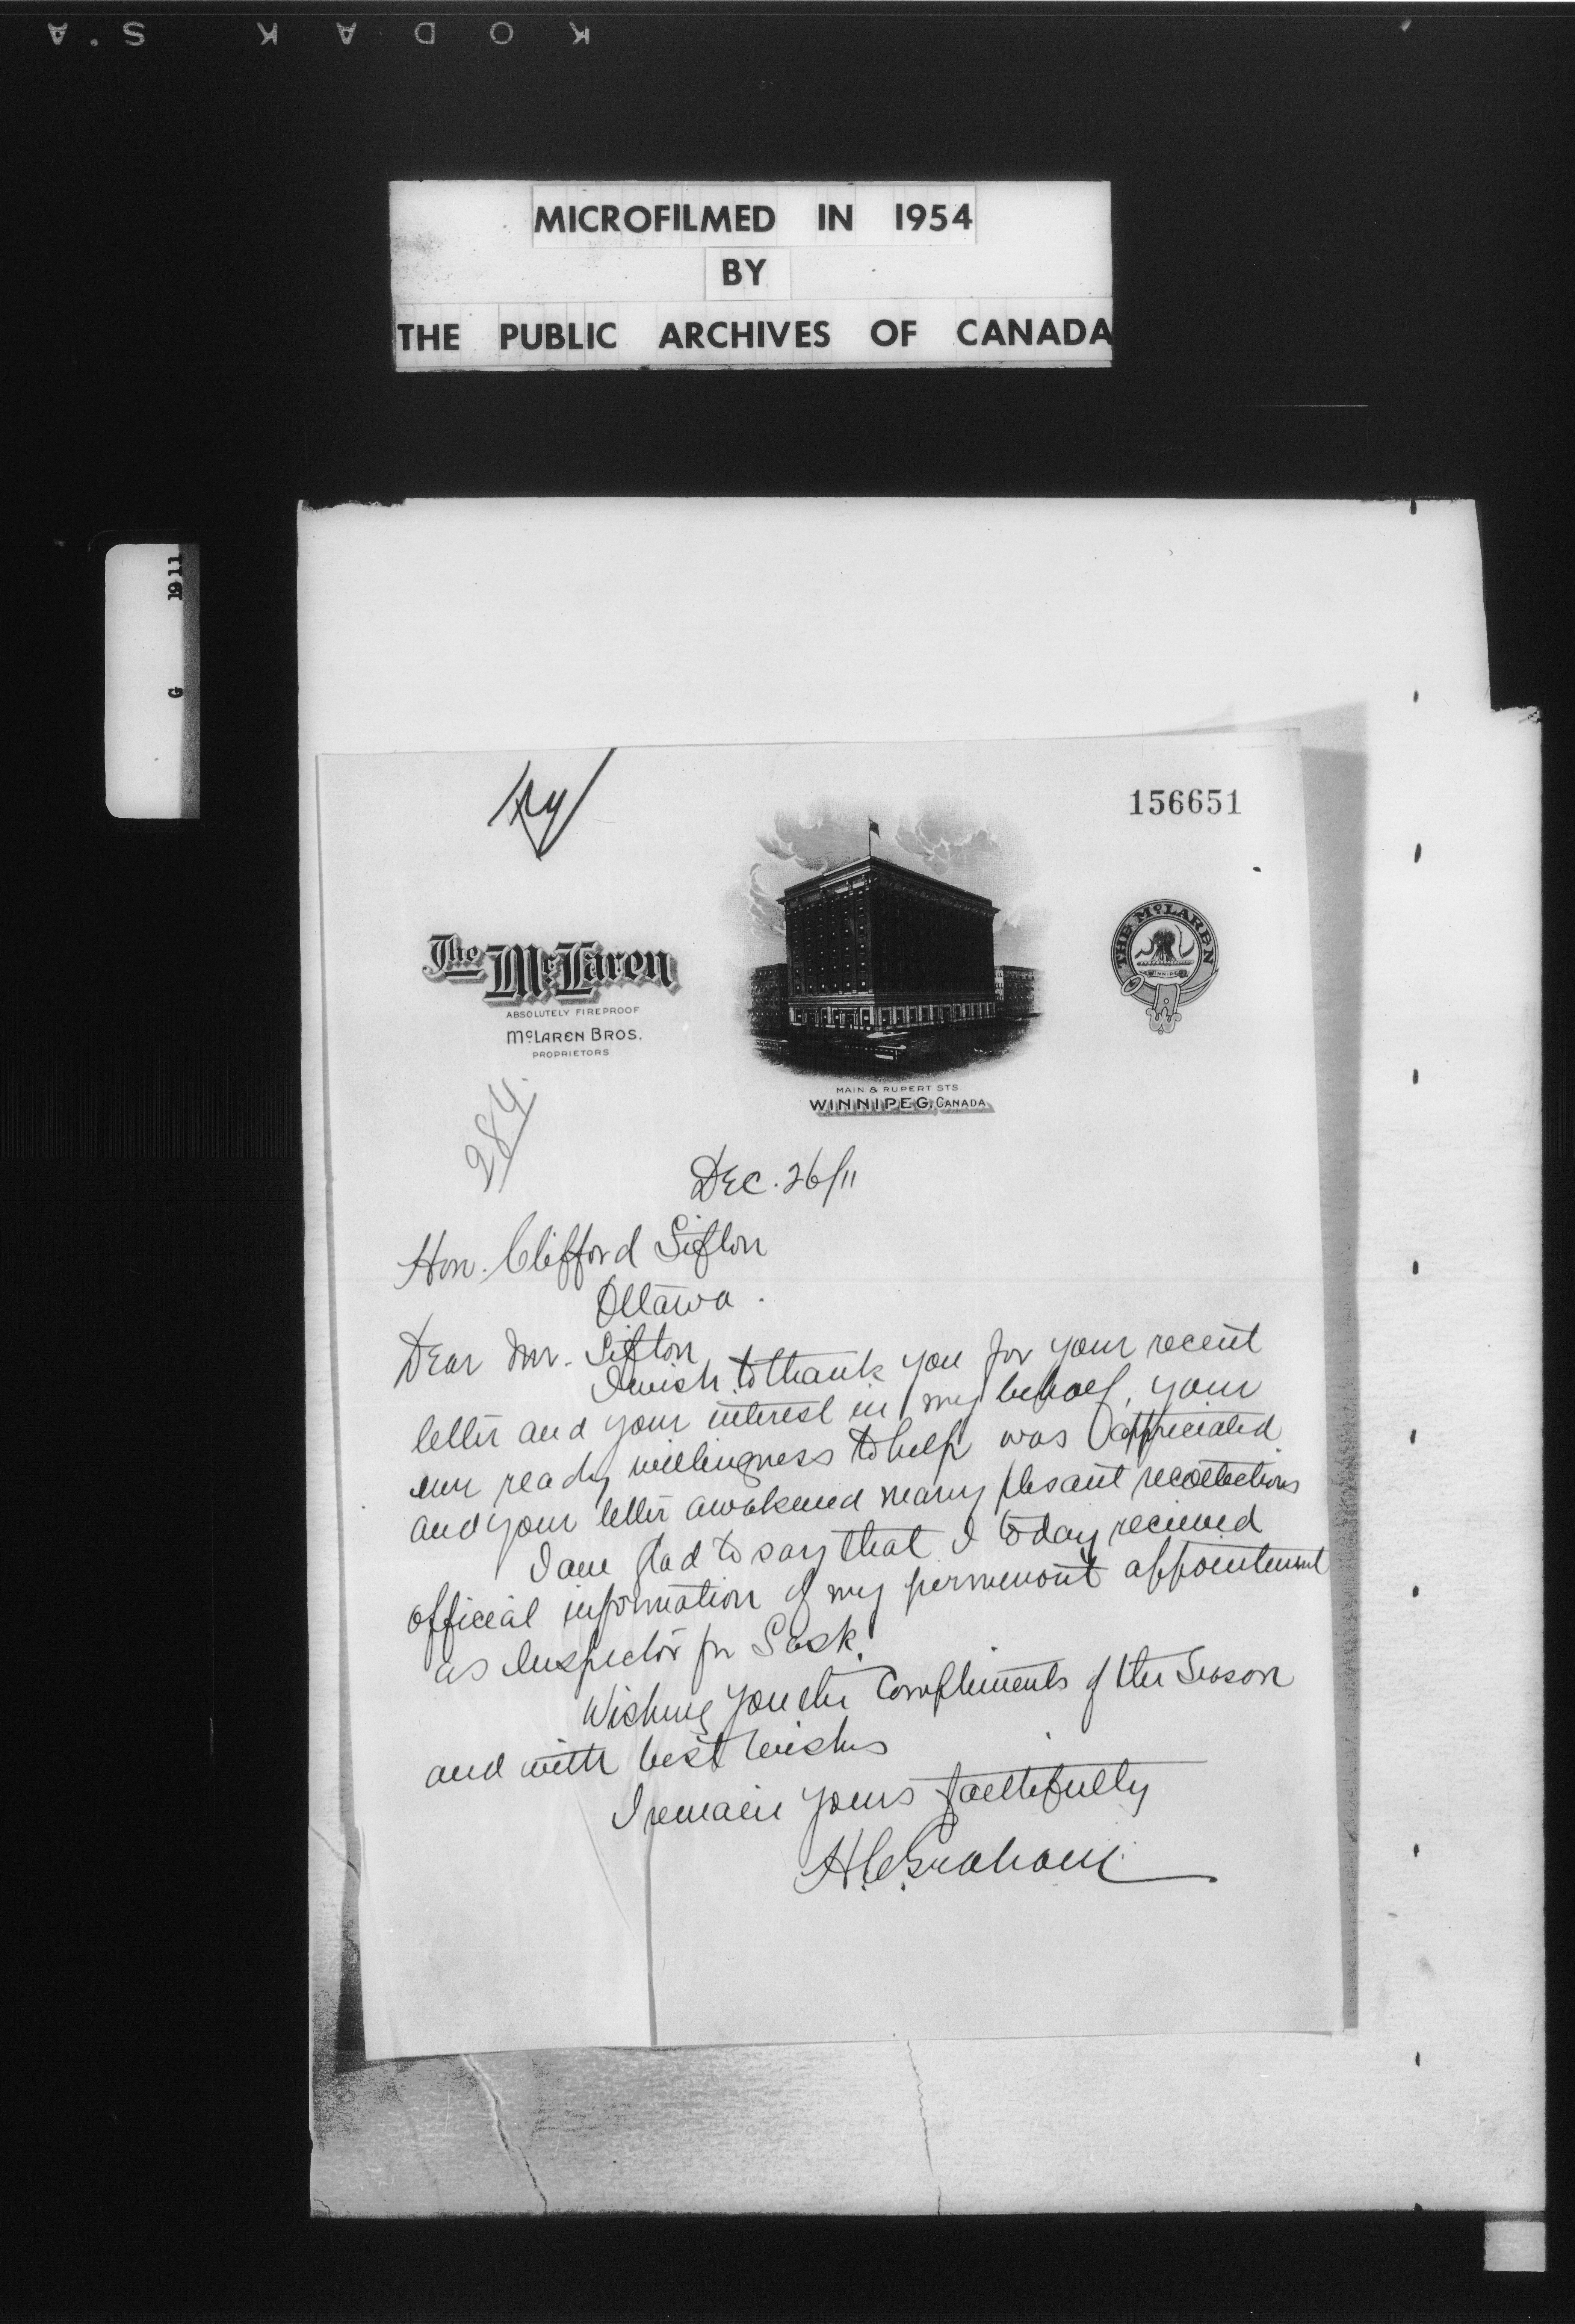 KODAK S.A
MICROFILMED IN 1954
BY
THE PUBLIC ARCHIVES OF CANADA
G 1911
156651
The McLaren
ABSOLUTELY FIREPROOF
McLAREN BROS.
PROPRIETORS
MAIN & RUPERT STS
WINNIPEG, CANADA
THE McLAREN
WINNIPEG
284
Dec. 26/11
Hon. Clifford Sifton
Ottawa.
Dear Mr. Sifton
I wish to thank you for your recent
letter and your interest in my behalf, your
ever ready willingness to help was appreciated
and your letter awakened many plesant recollections
I am glad to say that I today recieved
official information of my permenant appointment
as Inspector for Sask.
Wishing you the Compliments of the Season
and with best wishes
I remain yours faithfully
H.C. Graham